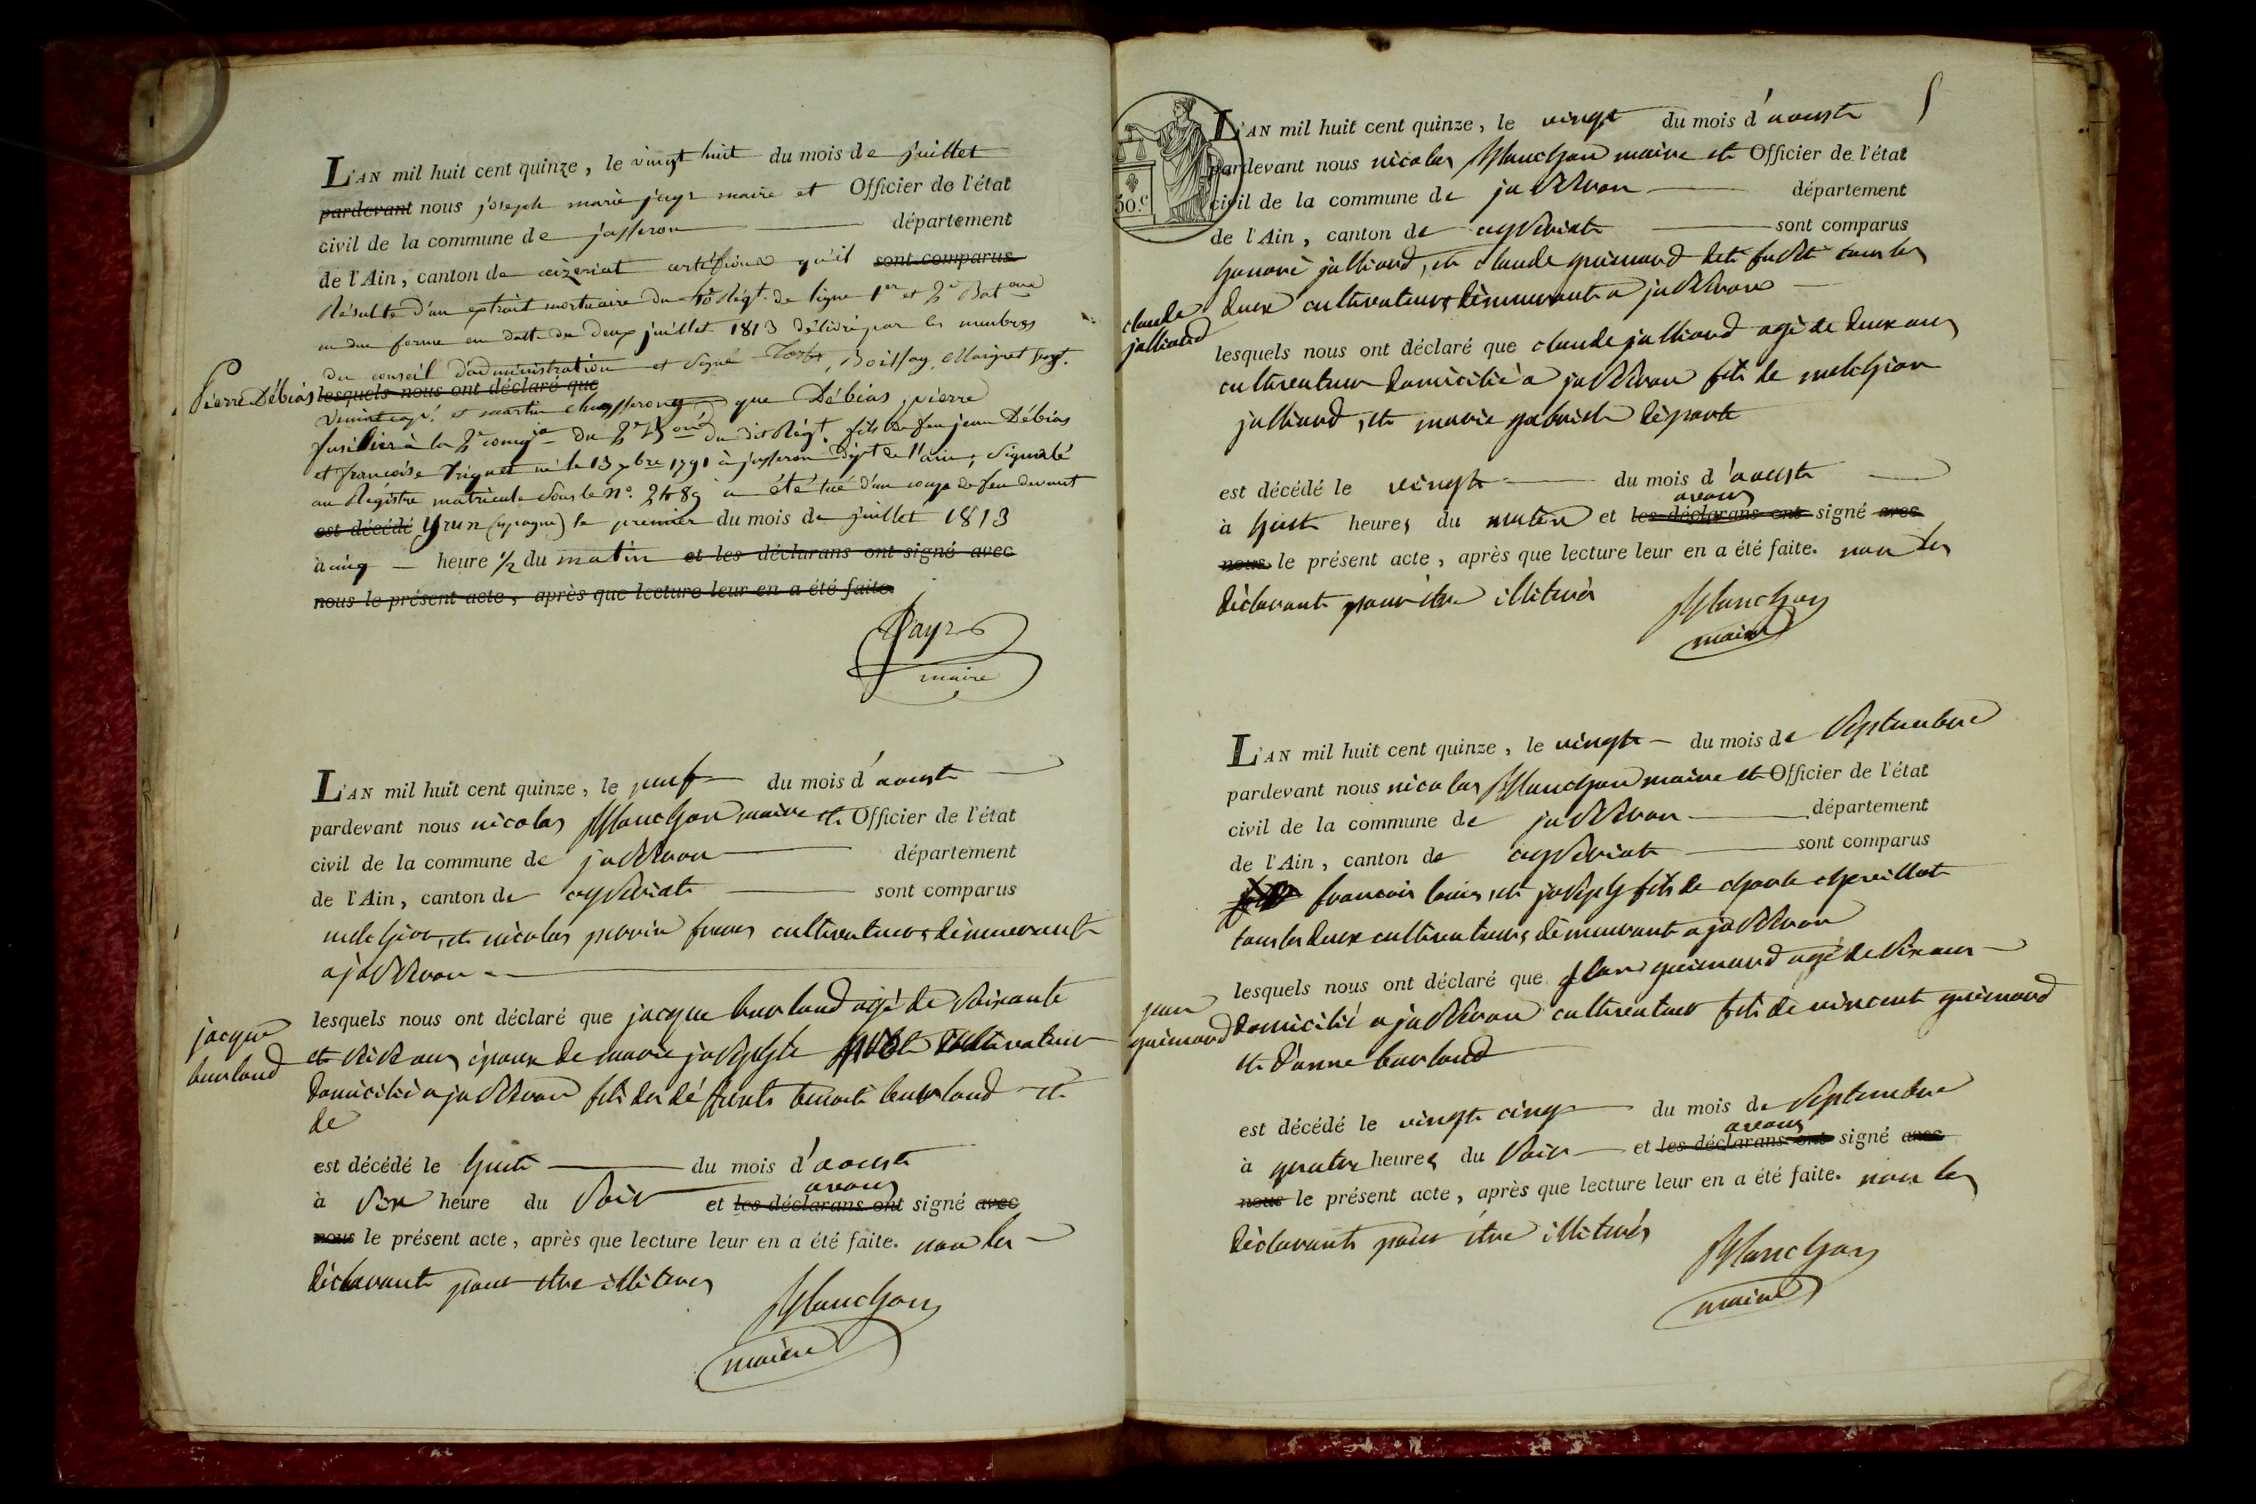 L'AN mil huit cent quinze, le vingt huit du mois de juillet
pardevant nous joseph marie jayr maire et Officier de l'état
civil de la commune de jasseron département
de l'Ain, canton de ceizeriat certifions qu'il sont comparus
Résulte d'un extrait mortuaire du Régt. de ligne 1er et 2e Bat
en due forme en datte du deux juillet 1813 délivré par les membres
du conseil d'administration et signé Boissay, Maigret
Pierre Débias
lesquels nous ont déclaré que
et martin que Débias pierre
fusilier à la 2e compie du 2e du dit Régt. fils de feu jean Débias
et francoise né le 13 xbre 1791 à jasseron dépt de l'ain, Signalé
au Régistre matricule sous le no. 2489 a été tué d'un coup de feu devant
est décédé Yrun (Espagne) le premier du mois de juillet 1813
à cinq heure 1/2 du matin et les déclarans ont signé avec
nous le présent acte, après que lecture leur en a été faite.
Jayr
maire
L'AN mil huit cent quinze, le neuf du mois d'aoust
pardevant nous nicolas Planchon maire et Officier de l'état
civil de la commune de jasseron département
de l'Ain, canton de ceyseriat sont comparus
melchior, et nicolas perrin freres cultivateurs démeurant
a jasseron
lesquels nous ont déclaré que jacque burtoud agé de soixante
jacque
burtoud
et six ans époux de marie josephte cultivateur
domicilié a jasseron fils des déffunts benoit burtoud et
de
est décédé le huit du mois d'aoust
à six heure du soir et les déclarans ont avons signé avec
nous le présent acte, après que lecture leur en a été faite. non les
déclarants pour etre illiterés
Planchon
maire
L'AN mil huit cent quinze, le vingt du mois d'aoust
pardevant nous nicolas Planchon maire et Officier de l'état
civil de la commune de jasseron département
50.c
de l'Ain, canton de ceyseriat sont comparus
honoré jalliard, et claude guimard tous les
claude
jalliard
deux cultivateurs démeurant a jasseron
lesquels nous ont déclaré que claude jalliard agé de deux ans
cultivateur domicilié a jasseron fils de melchior
jalliard, et marie
est décédé le vingt du mois d'aoust
à huit heures du matin et les déclarans ont avons signé avec
nous le présent acte, après que lecture leur en a été faite. non les
déclarants pour etre illiterés
Planchon
maire
L'AN mil huit cent quinze, le vingt du mois de septembre
pardevant nous nicolas Planchon maire et Officier de l'état
civil de la commune de jasseron département
de l'Ain, canton de ceyseriat sont comparus
francois louis, et joseph fils de charle chevillat
tous les deux cultivateurs démeurant a jasseron
lesquels nous ont déclaré que guimard agé de six ans
jean
guimard
domicilié a jasseron cultivateur fils de vincent guimard
et d'anne burtoud
est décédé le vingt cinq du mois de septembre
à quatre heures du soir et les déclarans ont avons signé avec
nous le présent acte, après que lecture leur en a été faite. non les
déclarants pour être illiterés
Planchon
maire